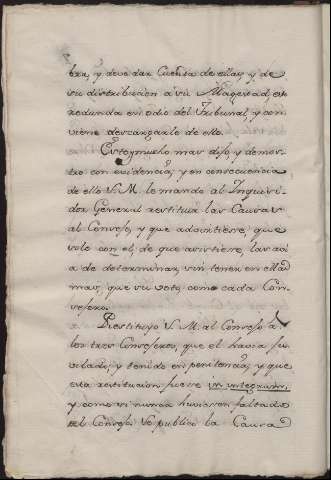 bra, y deve dar Cuenta de ellas, y de
su distribucion a su Magestad, esto
redunda en odio del Tribunal, y con
viene descargarle de ello.
Esto, y mucho mas dijo, y demos-
tro con evidencia, y en consecuencia
de ello S. M. le mando al Inquisi-
dor General restituia las Causas
al Consejo, y que advirtiese, que
solo con el, de que asistiese, las avi
a de determinar, sin tener en ellas
mas, que su voto, como cada Con-
sejero.
Restituyo S. M. al Consejo a
los tres Consejeros, que el havia ju-
vilado, y tenido en penitencias, y que
esta restitucion fuese in integrum,
y como si nunca huvieran faltado
del Consejo. Se publicó la Causa